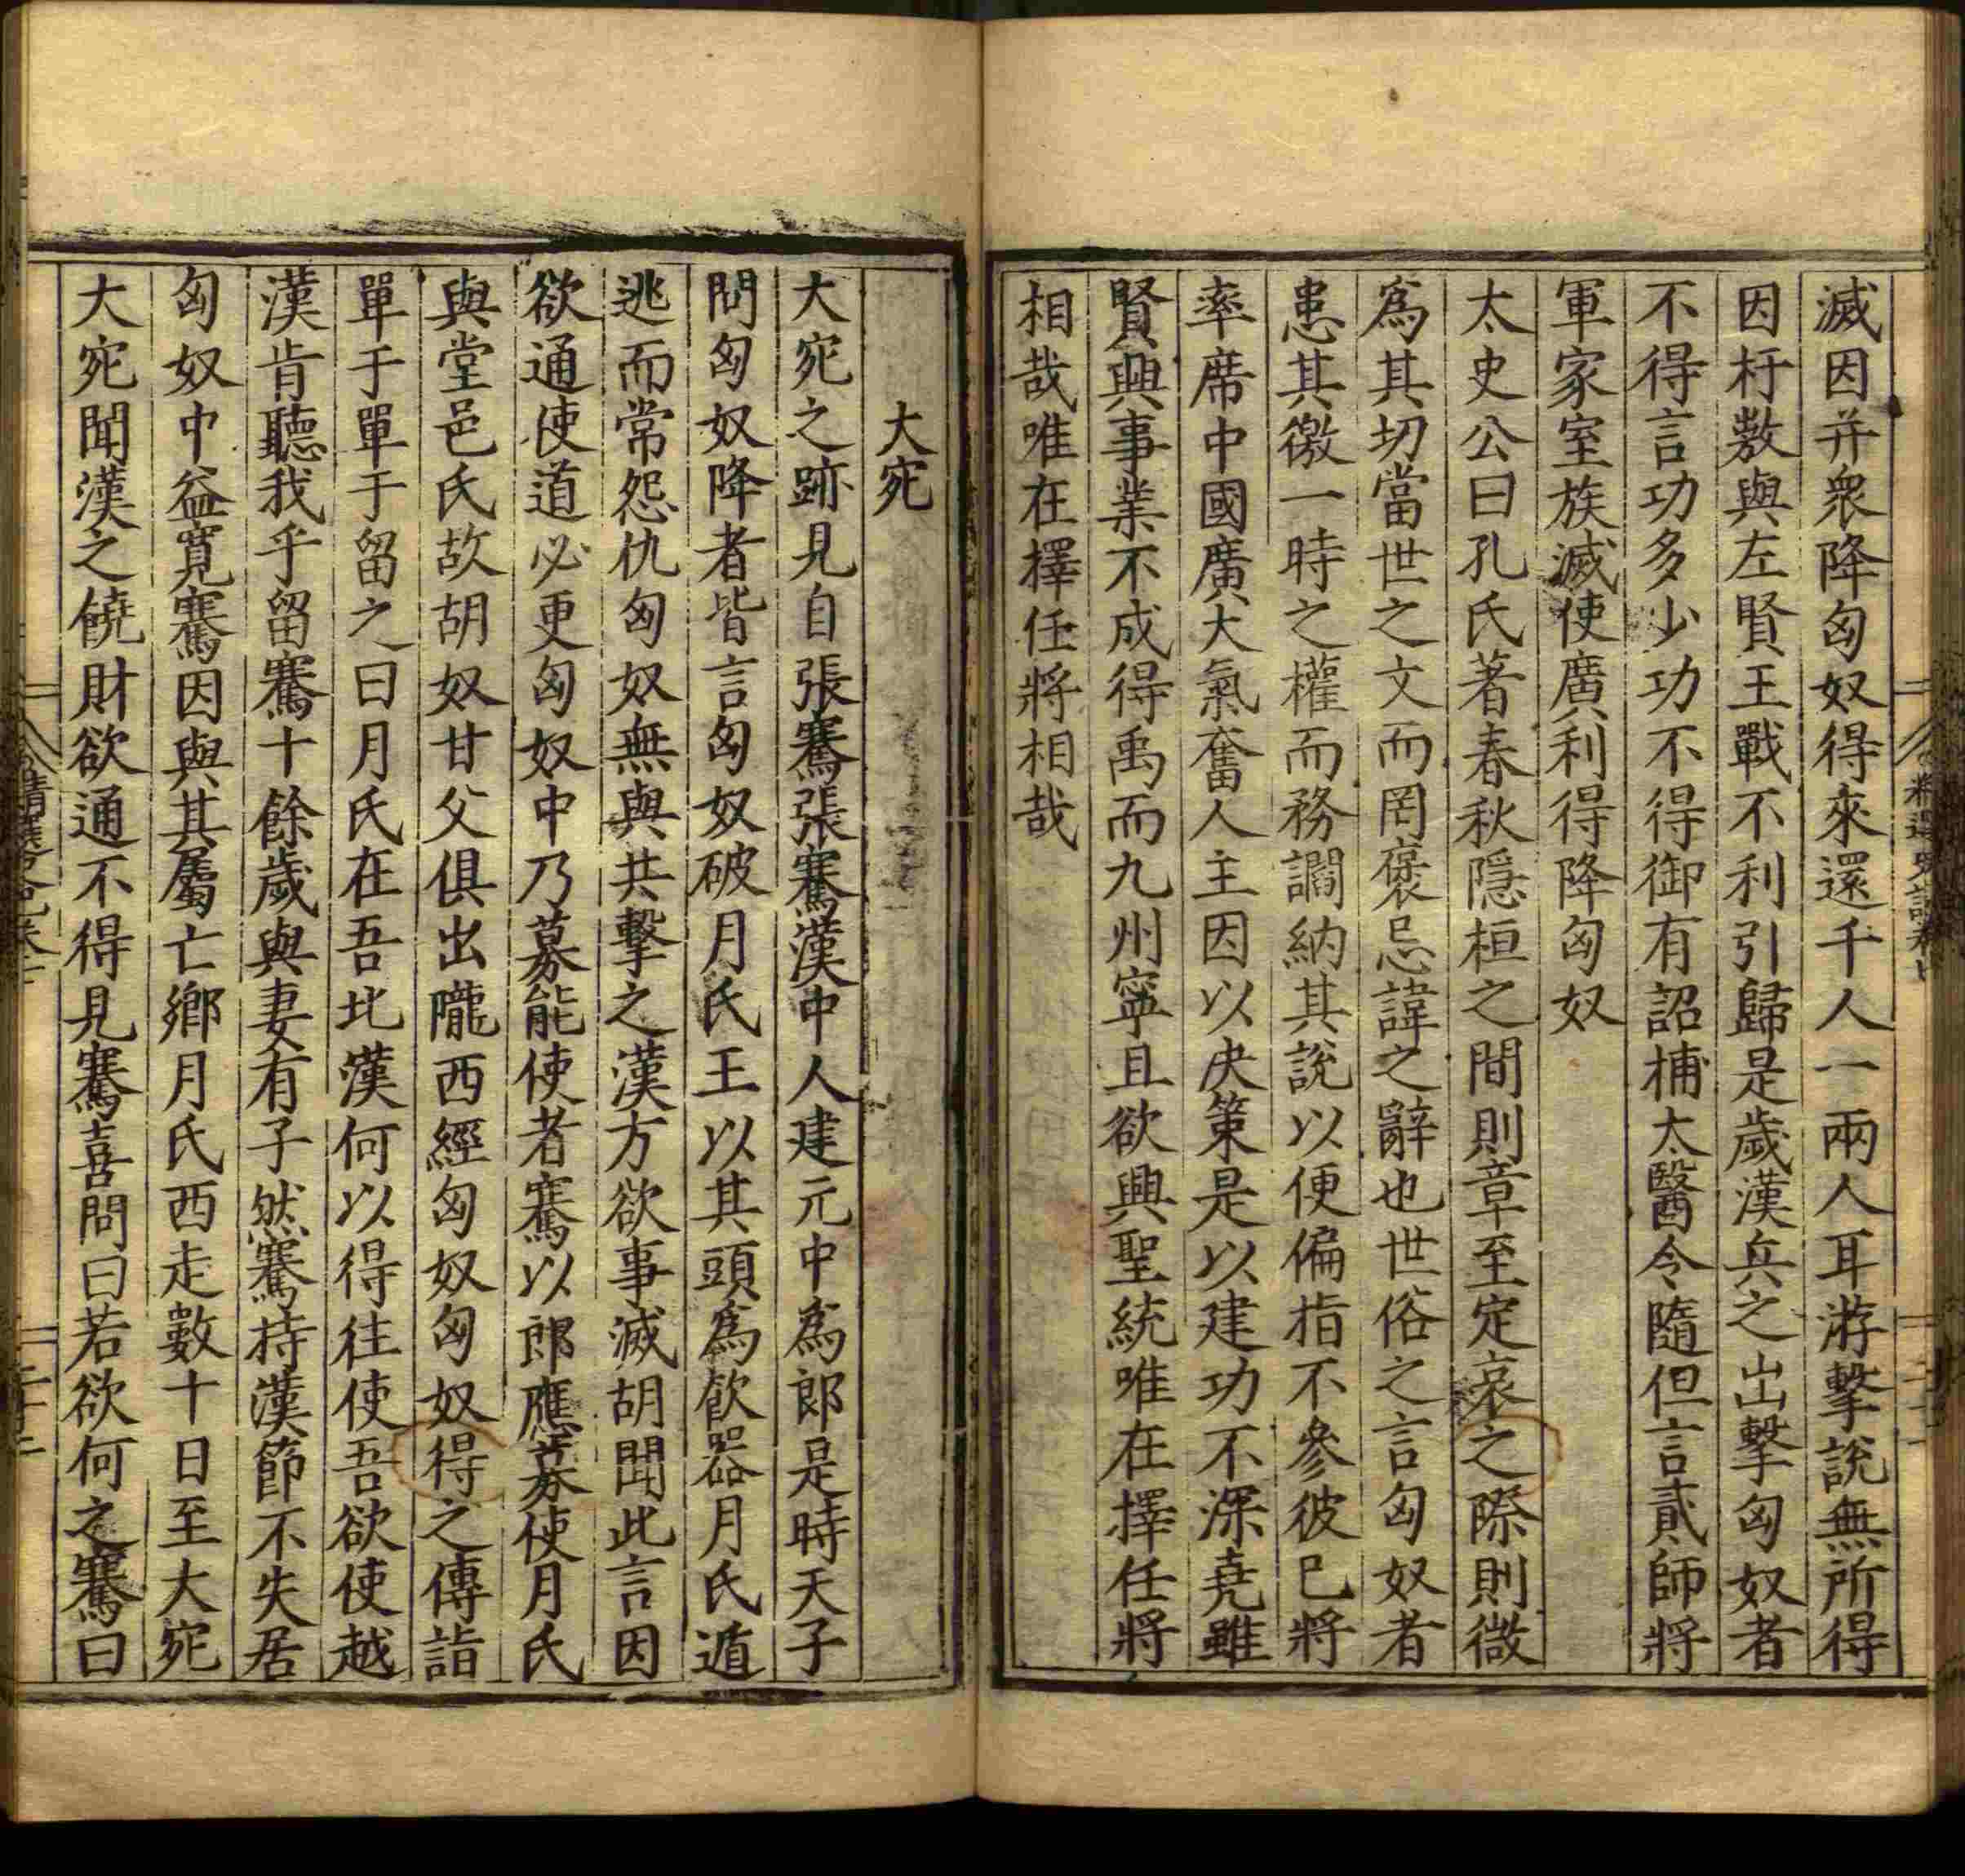 滅因并衆降匈奴得來還千人一兩人耳游擊說無所得
因杅敖與左賢王戰不利引歸是歲漢兵之出擊匈奴者
不得言功多少功不得御有詔捕太醫令隨但言貳師將
軍家室族滅使廣利得降匈奴
太史公曰孔氏著春秋隱桓之間則章至定哀之際則微
爲其切當世之文而罔褒忌諱之辭也世俗之言匈奴者
患其徼一時之權而務讇納其說以便偏指不參彼已將
率席中國廣大氣奮人主因以决策是以建功不深堯雖
賢興事業不成得禹而九州寧且欲興聖統唯在擇任將
相哉唯在擇任將相哉
大宛
大宛之跡見自張騫張騫漢中人建元中爲郎是時天子
問匈奴降者皆言匈奴破月氏王以其頭爲飲器月氏遁
逃而常怨仇匈奴無與共擊之漢方欲事滅胡聞此言因
欲通使道必更匈奴中乃募能使者騫以郎應募使月氏
與堂邑氏故胡奴甘父俱出隴西經匈奴匈奴得之傳詣
單于單于留之曰月氏在吾北漢何以得往使吾欲使越
漢肯聽我乎留騫十餘歲與妻有子然騫持漢節不失居
匈奴中益寬騫因與其屬亡鄉月氏西走數十日至大宛
大宛聞漢之饒財欲通不得見騫喜問曰若欲何之騫曰